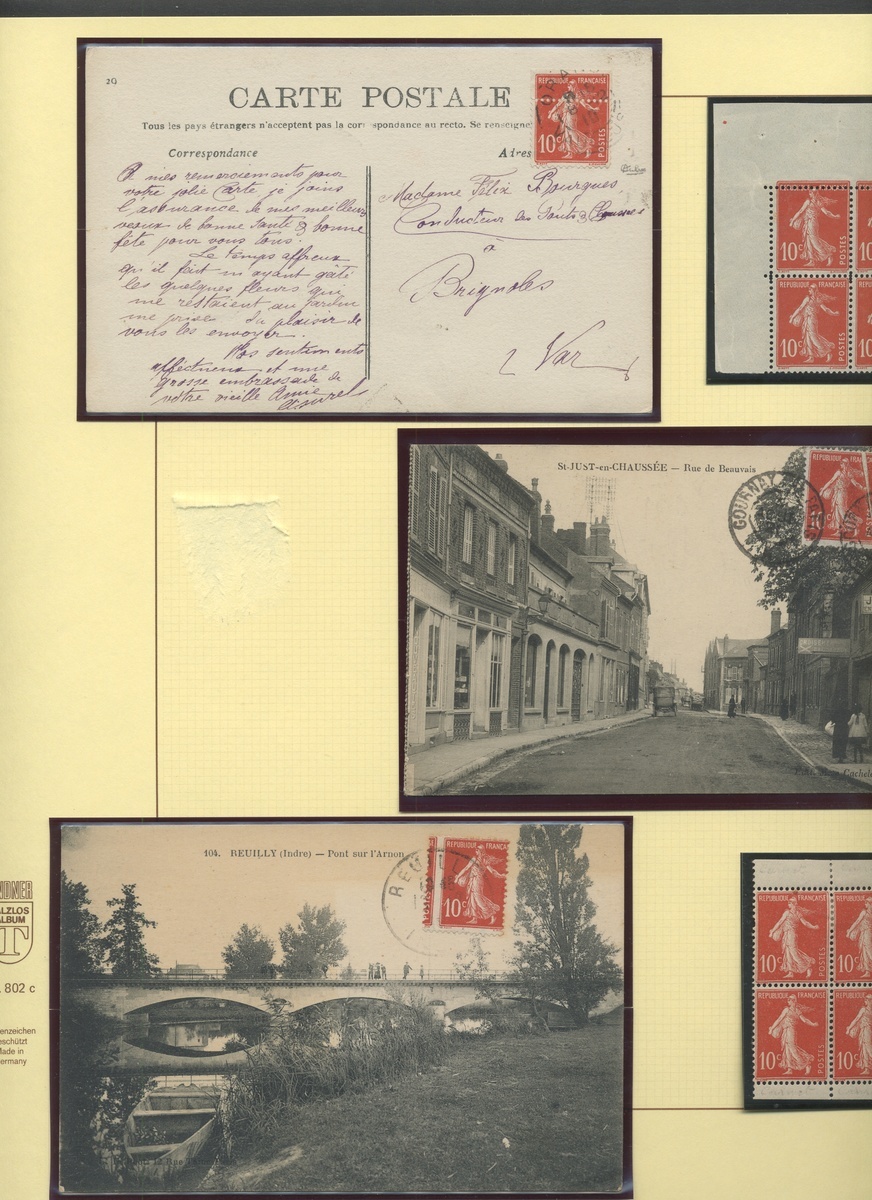 20
CARTE POSTALE
Tous les pays étrangers n'acceptent pas la correspondance au recto. Se renseigne
Correspondance
Adres
A mes remerciements pour
votre jolie Carte je joins
l'assurance de mes meilleurs
vœux de bonne santé & bonne
fête pour vous tous.
Le temps affreux
qu'il fait m'ayant gâté
les quelques fleurs qui
me restaient au jardin
me prive du plaisir de
vous les envoyer.
Mes sentiments
affectueux et une
grosse embrassade de
votre vieille Amie
Madame Félix Bourgues
Conducteur des Ponts &
à
Brignoles
Var
REPUBLIQUE FRANÇAISE
10c
POSTES
10c
POSTES
REPUBLIQUE FRANÇAISE
10c
POSTES
St-JUST-en-CHAUSSÉE — Rue de Beauvais
GOURNAY
REPUBLIQUE FRANÇ
104. REUILLY (Indre) — Pont sur l'Arnon
REUILL
REPUBLIQUE FRANÇA
10c
REPUBLIQUE FRANÇAISE
10c
POSTES
REPUBLIQUE FRANÇAISE
10c
POSTES
NDNER
ALZLOS
ALBUM
T
802 c
enzeichen
eschützt
Made in
ermany